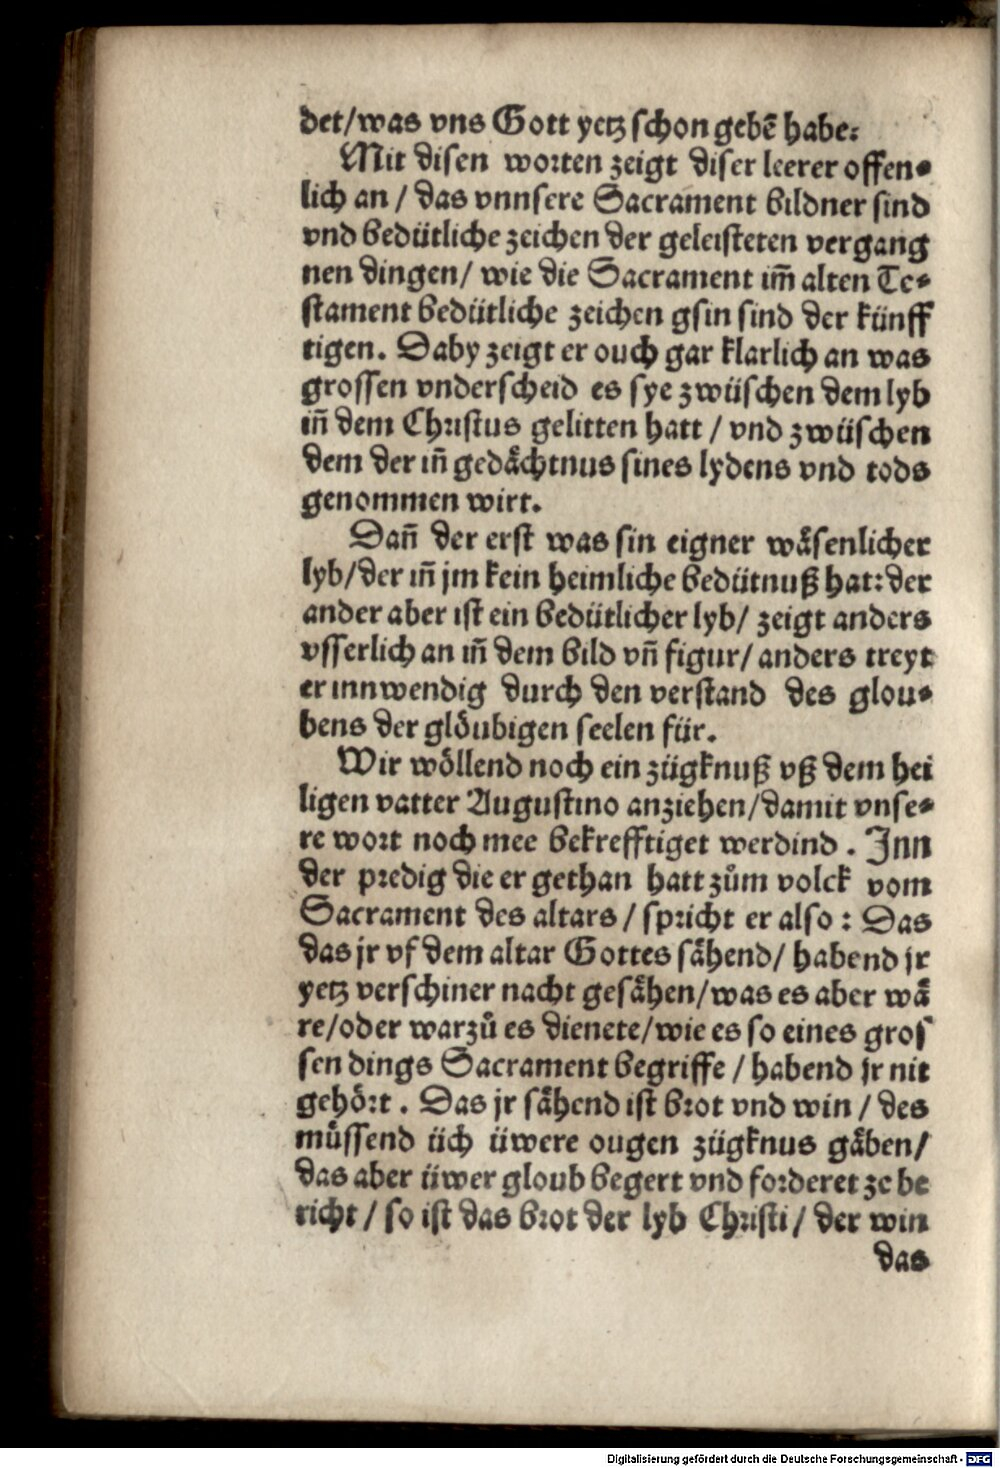 det/was vns Gott yetz schon gebẽ habe:
Mit disen worten zeigt diser leerer offen-
lich an / das vnnsere Sacrament bildner sind
vnd bedütliche zeichen der geleisteten vergang
nen dingen/ wie die Sacrament im̃ alten Te-
stament bedütliche zeichen gsin sind der künff
tigen. Daby zeigt er ouch gar klarlich an was
grossen vnderscheid es sye zwüschen dem lyb
in̄ dem Christus gelitten hatt / vnd zwüschen
dem der in̄ gedaͤchtnus sines lydens vnd tods
genommen wirt.
Dan̄ der erst was sin eigner waͤsenlicher
lyb/der in̄ jm kein heimliche bedütnuß hat: der
ander aber ist ein bedütlicher lyb/ zeigt anders
vsserlich an in̄ dem bild vn̄ figur/ anders treyt
er innwendig durch den verstand des glou-
bens der gloͤubigen seelen für.
Wir woͤllend noch ein zügknuß vß dem hei
ligen vatter Augustino anziehen/damit vnse-
re wort noch mee bekrefftiget werdind . Jnn
der predig die er gethan hatt zům volck vom
Sacrament des altars / spricht er also : Das
das jr vf dem altar Gottes saͤhend/ habend jr
yetz verschiner nacht gesaͤhen/was es aber waͤ
re/oder warzů es dienete/wie es so eines gros
sen dings Sacrament begriffe / habend jr nit
gehoͤrt . Das jr saͤhend ist brot vnd win / des
muͤssend üch üwere ougen zügknus gaͤben/
das aber üwer gloub begert vnd forderet ze be
richt / so ist das brot der lyb Christi / der win
das
Digitalisierung gefördert durch die Deutsche Forschungsgemeinschaft - DFG